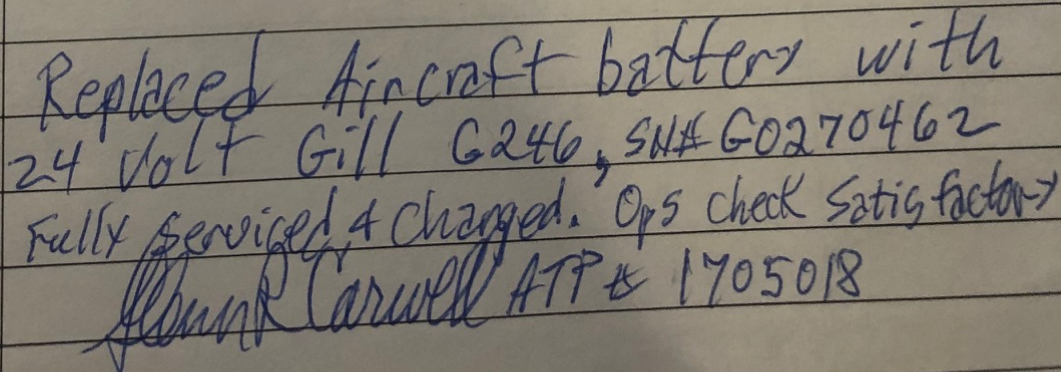 Replaced Aircraft battery with
24 Volt Gill G246, SN# G0270462
Fully Serviced & Charged. Ops check Satisfactory
Carwell ATP # 1705018